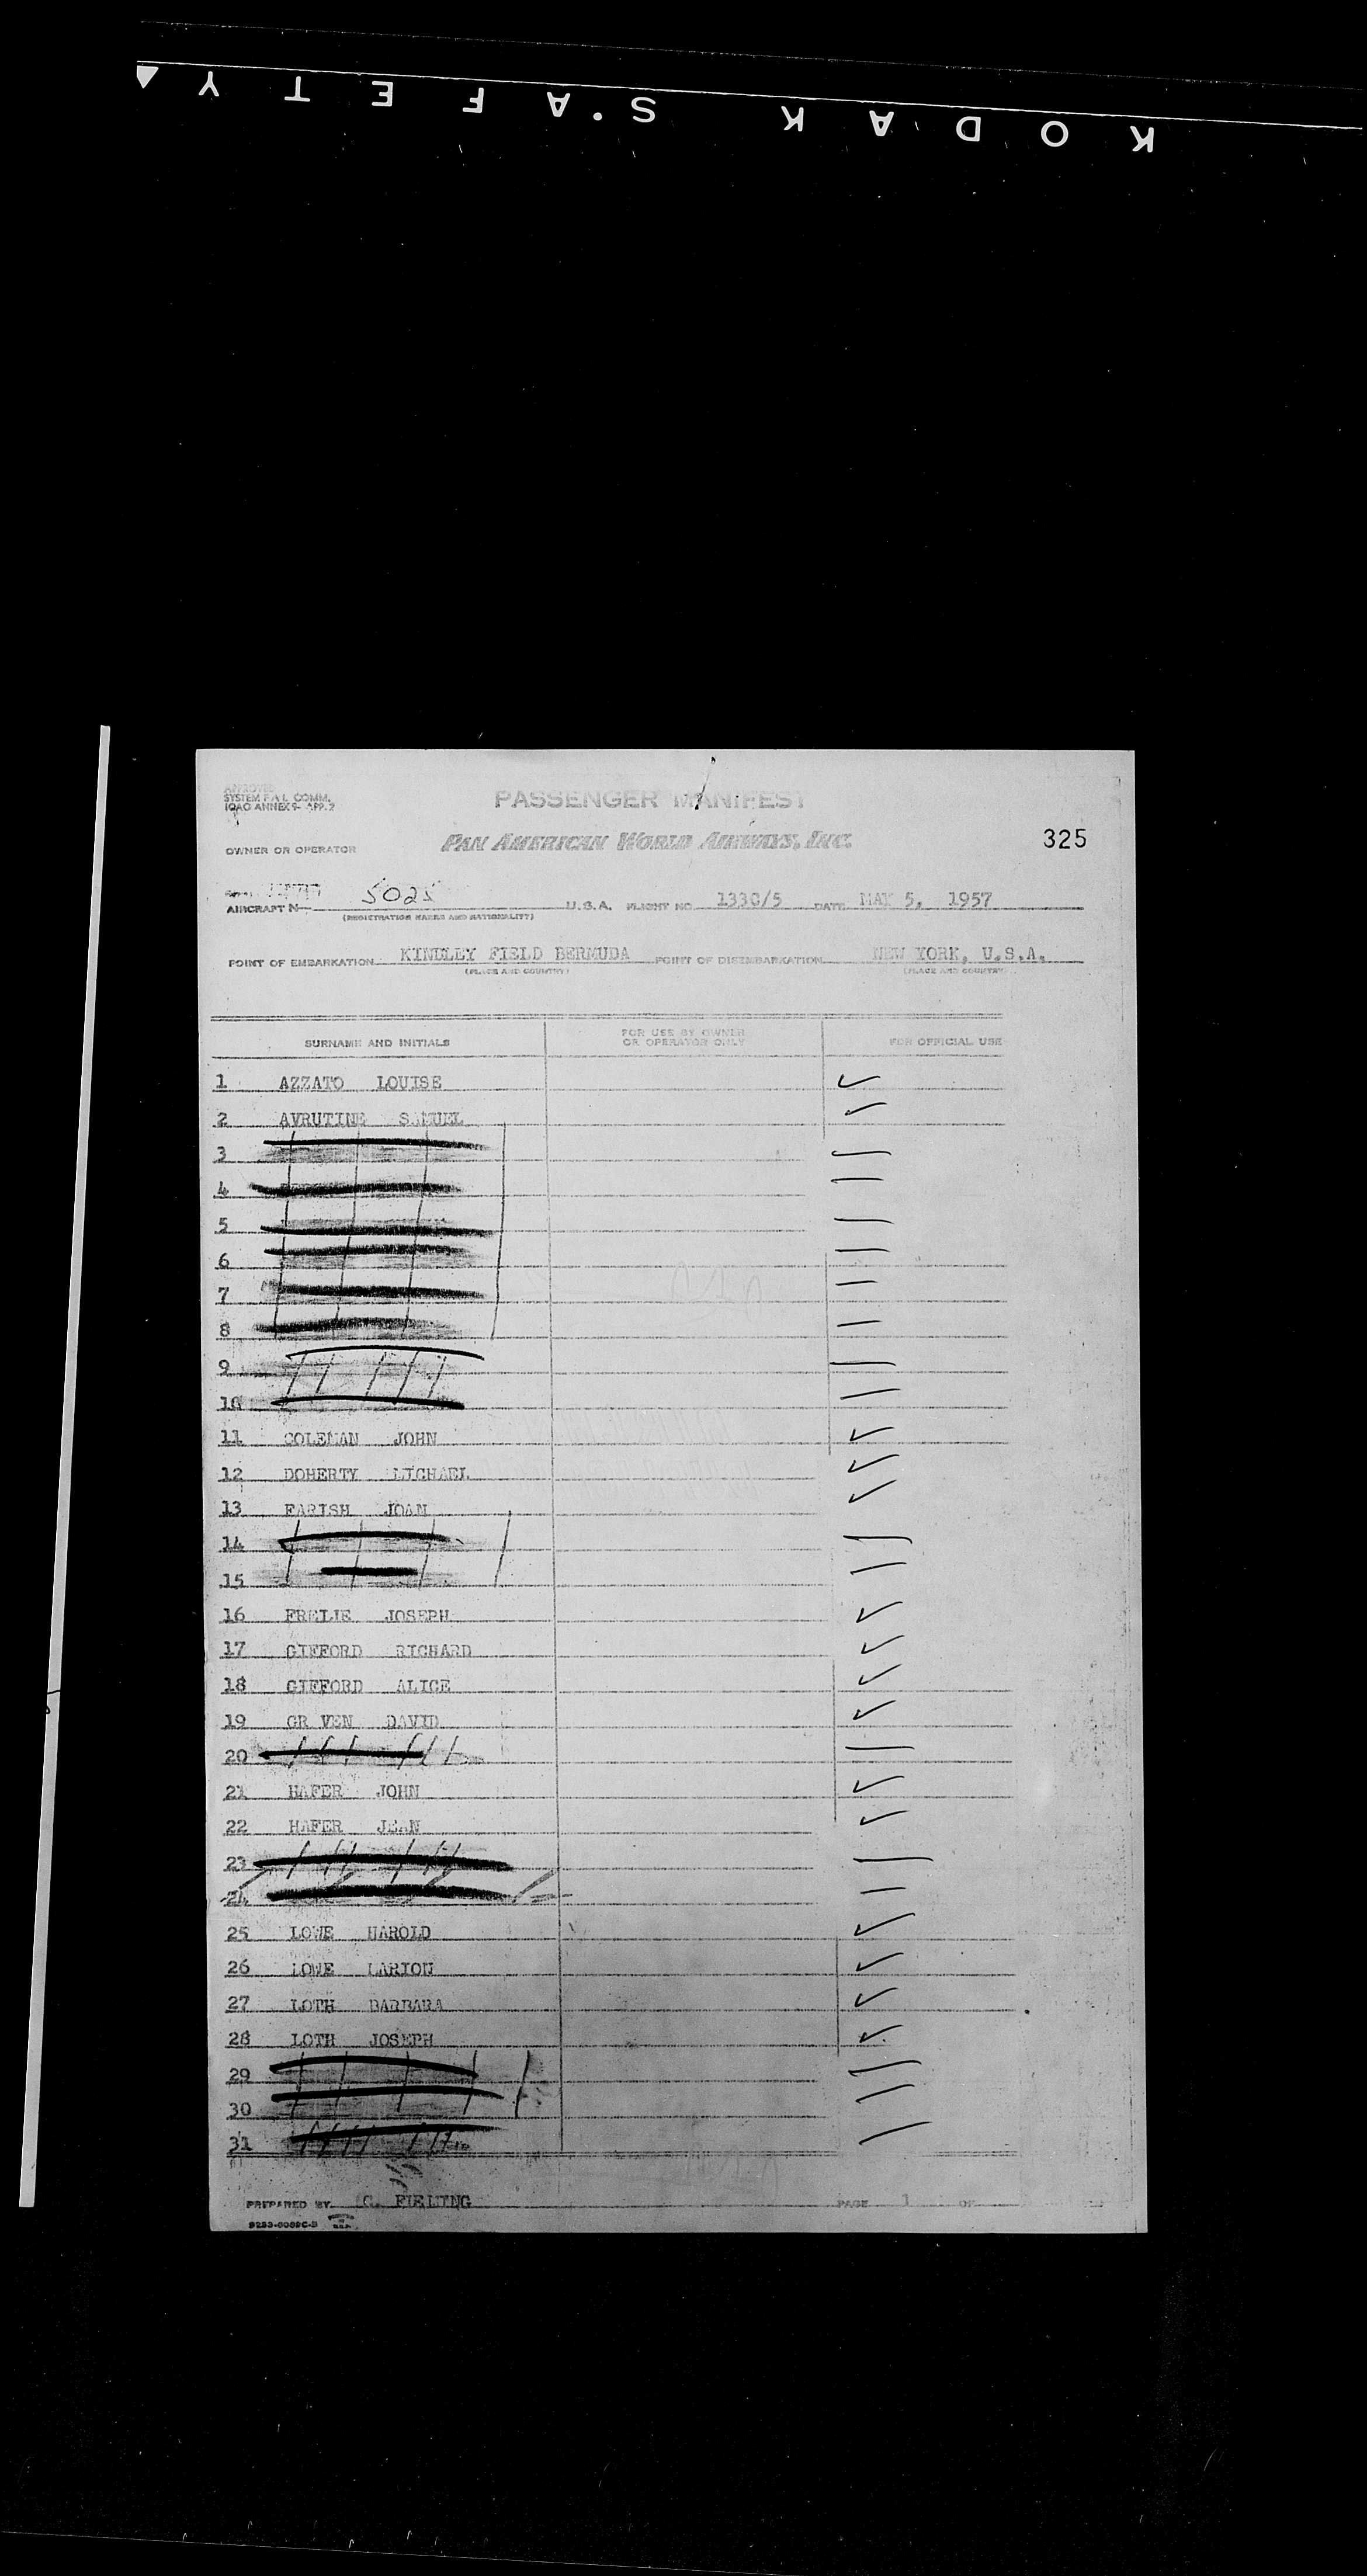 KODAK SAFETY
APPROVED
SYSTEM F.A.L. COMM.
ICAO ANNEX 9- APP. 2
PASSENGER MANIFEST
PAN AMERICAN WORLD AIRWAYS, INC.
325
OWNER OR OPERATOR
AIRCRAFT N 5025 U.S.A. FLIGHT NO 1330/5 DATE MAY 5, 1957
(REGISTRATION MARKS AND NATIONALITY)
POINT OF EMBARKATION KINDLEY FIELD BERMUDA POINT OF DISEMBARKATION NEW YORK, U.S.A.
(PLACE AND COUNTRY) (PLACE AND COUNTRY)
SURNAME AND INITIALS FOR USE BY OWNER OR OPERATOR ONLY FOR OFFICIAL USE
1 AZZATO LOUISE
2 AVRUTINE SAMUEL
3
4
5
6
7
8
9
10
11 COLEMAN JOHN
12 DOHERTY MICHAEL
13 FARISH JOAN
14
15
16 FRELIE JOSEPH
17 GIFFORD RICHARD
18 GIFFORD ALICE
19 GR VEN DAVID
20
21 HAFER JOHN
22 HAFER JEAN
23
24
25 LOWE HAROLD
26 LOWE MARION
27 LOTH BARBARA
28 LOTH JOSEPH
29
30
31
PREPARED BY C. FIELDING PAGE 1 OF